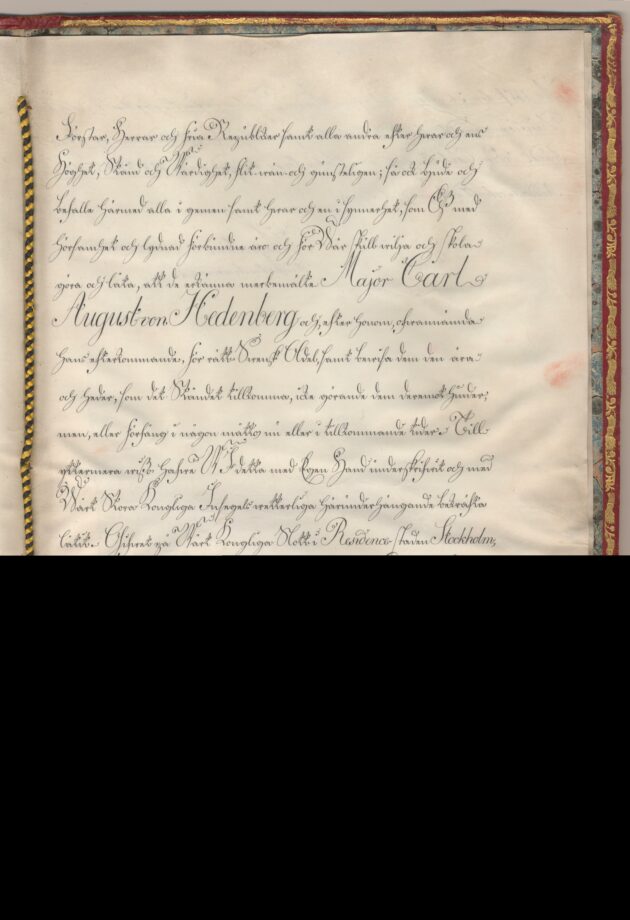 Förstar, Herrar och fria Republiker samt alla andra efter hvars och ens
Höghet, Stånd och Wärdighet, flit- wän- och gunsteligen; så ock bjude och
befalle härmed alla i gemen samt hvar och en i synnerhet, som Oß med
hörsamhet och lydnad förbundne äro och för Wår skull vilja och skola
göra och låta, att de erkänna merbemälte Major Carl
August von Hedenberg och, efter honom, ofvannämnda
hans efterkommande, för rätt Svensk Adel, samt bevisa dem den ära
och heder, som det Ståndet tillkomma, icke görande dem deremot hinder,
men, eller förfång i någon måtto nu eller i tillkommande tider. Till
yttermera wißo hafve Wi detta med Egen Hand underskrifvit och med
Wårt Stora Kongliga Insegels wetterliga härunderhängande bekräfta
låtit. Gifvet på Wårt Kongliga Slott i Residence-staden Stockholm,